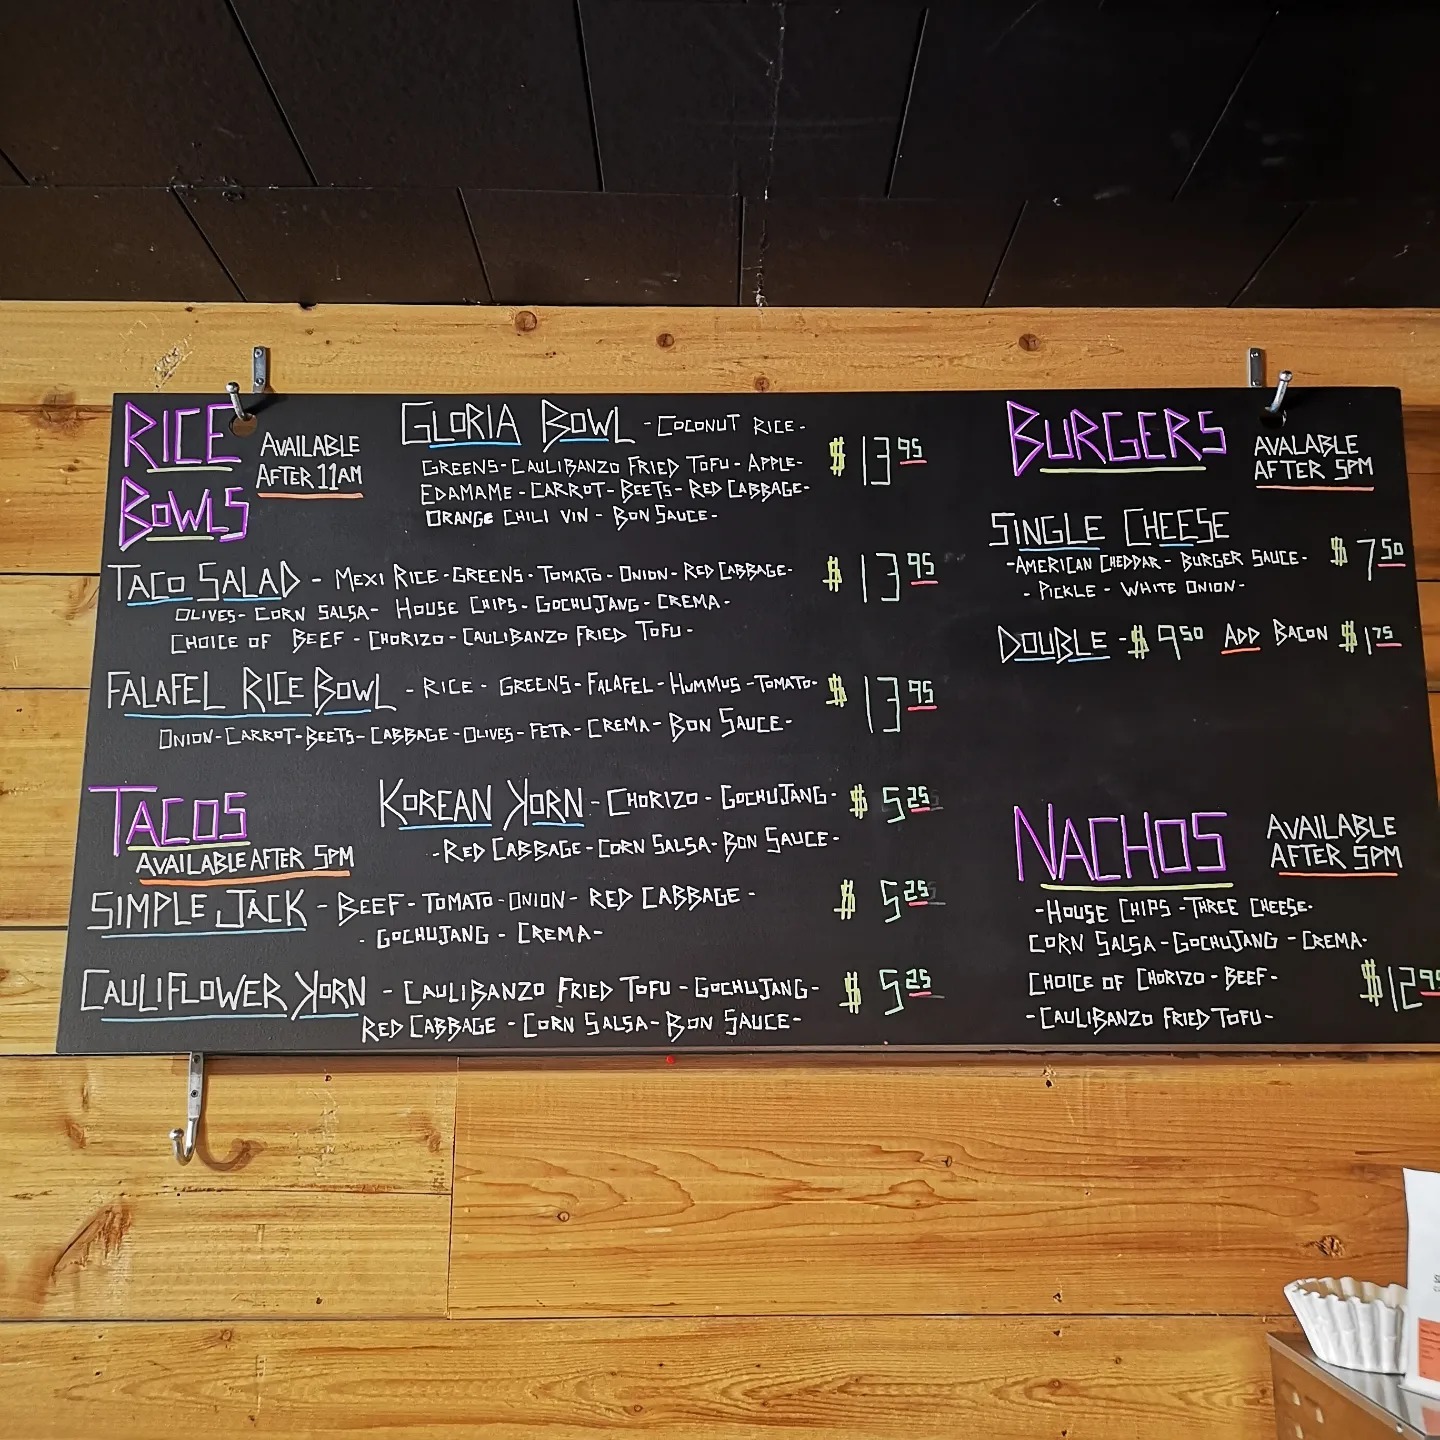 RICE
BOWLS
AVAILABLE
AFTER 11AM
GLORIA BOWL - COCONUT RICE -
GREENS - CAULIBANZO FRIED TOFU - APPLE -
EDAMAME - CARROT - BEETS - RED CABBAGE -
ORANGE CHILI VIN - BON SAUCE -
$ 13 95
TACO SALAD - MEXI RICE - GREENS - TOMATO - ONION - RED CABBAGE -
OLIVES - CORN SALSA - HOUSE CHIPS - GOCHUJANG - CREMA -
CHOICE OF BEEF - CHORIZO - CAULIBANZO FRIED TOFU -
$ 13 95
FALAFEL RICE BOWL - RICE - GREENS - FALAFEL - HUMMUS - TOMATO -
ONION - CARROT - BEETS - CABBAGE - OLIVES - FETA - CREMA - BON SAUCE -
$ 13 95
TACOS
AVAILABLE AFTER 5PM
KOREAN KORN - CHORIZO - GOCHUJANG -
- RED CABBAGE - CORN SALSA - BON SAUCE -
$ 5 25
SIMPLE JACK - BEEF - TOMATO - ONION - RED CABBAGE -
- GOCHUJANG - CREMA -
$ 5 25
CAULIFLOWER KORN - CAULIBANZO FRIED TOFU - GOCHUJANG -
RED CABBAGE - CORN SALSA - BON SAUCE -
$ 5 25
BURGERS
AVALABLE
AFTER 5PM
SINGLE CHEESE
- AMERICAN CHEDDAR - BURGER SAUCE -
- PICKLE - WHITE ONION -
$ 7 50
DOUBLE - $ 9 50 ADD BACON $ 1 75
NACHOS
AVAILABLE
AFTER 5PM
- HOUSE CHIPS - THREE CHEESE -
CORN SALSA - GOCHUJANG - CREMA -
CHOICE OF CHORIZO - BEEF -
- CAULIBANZO FRIED TOFU -
$ 12 95